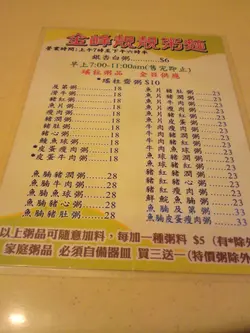 金峰煲煲粥麵
營業時間:上午7時至下午六時半
銀杏白粥..............$6
早上7:00-11:00am(售完即止)
瑤柱粥品 全日供應
*瑤柱齋粥$10
皮蛋粥 18
滑牛粥 18
豬紅粥 18
豬心粥 18
豬肚粥 18
魚腩粥 18
魚片粥 18
瘦肉粥 18
魚球粥 18
*皮蛋瘦肉粥 18
*皮蛋牛肉粥 18
魚腩豬潤粥 28
魚腩豬紅粥 28
魚腩魚球粥 28
魚腩豬心粥 28
魚腩豬肚粥 28
魚片豬潤粥 23
魚片豬紅粥 23
魚片牛肉粥 23
魚片瘦肉粥 23
魚片魚球粥 23
魚片豬心粥 23
魚片豬肚粥 23
豬紅豬潤粥 23
豬紅豬心粥 23
豬紅豬肚粥 23
鮮鯇魚腩粥 23
魚腩及第粥 33
魚腩皮蛋瘦肉粥 33
以上粥品可隨意加料,每加一種粥料 $5 (有*除外
家庭粥品 必須自備器皿 買三送一(特價粥除外